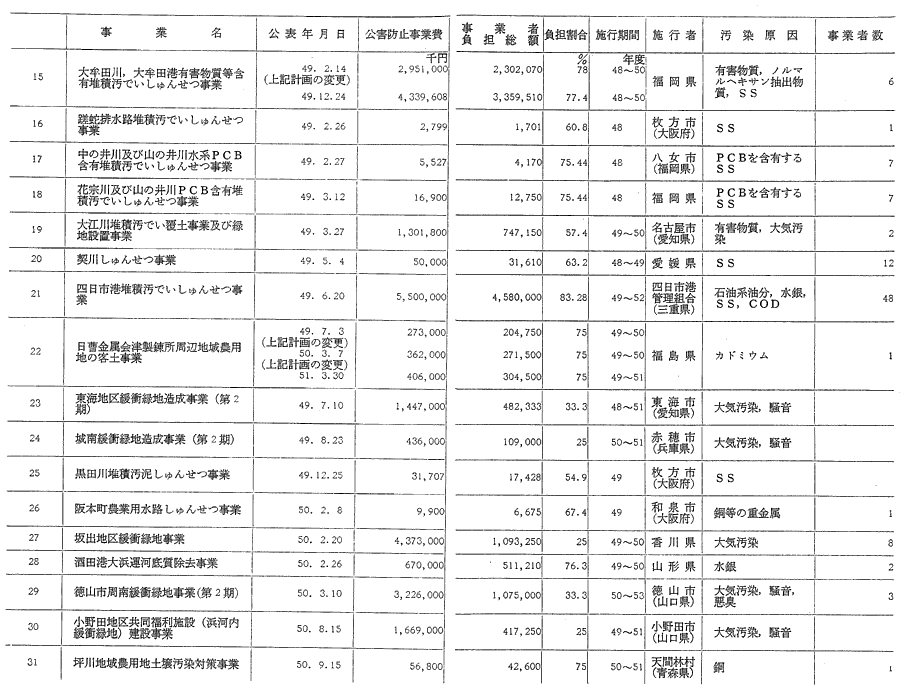 事業名 公表年月日 公害防止事業費 事業者負担総額 負担割合 施行期間 施行者 汚染原因 事業者数
千円 % 年度
15 大牟田川，大牟田港有害物質等含有堆積汚でいしゅんせつ事業 49. 2.14 2,951,000 2,302,070 78 48〜50 福岡県 有害物質，ノルマルヘキサン抽出物質，ＳＳ 6
(上記計画の変更)
49.12.24 4,339,608 3,359,510 77.4 48〜50
16 蹉蛇排水路堆積汚でいしゅんせつ事業 49. 2.26 2,799 1,701 60.8 48 枚方市(大阪府) ＳＳ 1
17 中の井川及び山の井川水系ＰＣＢ含有堆積汚でいしゅんせつ事業 49. 2.27 5,527 4,170 75.44 48 八女市(福岡県) ＰＣＢを含有するＳＳ 7
18 花宗川及び山の井川ＰＣＢ含有堆積汚でいしゅんせつ事業 49. 3.12 16,900 12,750 75.44 48 福岡県 ＰＣＢを含有するＳＳ 7
19 大江川堆積汚でい覆土事業及び緑地設置事業 49. 3.27 1,301,800 747,150 57.4 49〜50 名古屋市(愛知県) 有害物質，大気汚染 2
20 契川しゅんせつ事業 49. 5. 4 50,000 31,610 63.2 48〜49 愛媛県 ＳＳ 12
21 四日市港堆積汚でいしゅんせつ事業 49. 6.20 5,500,000 4,580,000 83.28 49〜52 四日市港管理組合(三重県) 石油系油分，水銀，ＳＳ，ＣＯＤ 48
22 日曹金属会津製錬所周辺地域農用地の客土事業 49. 7. 3 273,000 204,750 75 49〜50 福島県 カドミウム 1
(上記計画の変更)
50. 3. 7 362,000 271,500 75 49〜50
(上記計画の変更)
51. 3.30 406,000 304,500 75 49〜51
23 東海地区緩衝緑地造成事業（第２期） 49. 7.10 1,447,000 482,333 33.3 48〜51 東海市(愛知県) 大気汚染，騒音
24 城南緩衝緑地造成事業（第２期） 49. 8.23 436,000 109,000 25 50〜51 赤穂市(兵庫県) 大気汚染，騒音
25 黒田川堆積汚泥しゅんせつ事業 49.12.25 31,707 17,428 54.9 49 枚方市(大阪府) ＳＳ
26 阪本町農業用水路しゅんせつ事業 50. 2. 8 9,900 6,675 67.4 49 和泉市(大阪府) 銅等の重金属 1
27 坂出地区緩衝緑地事業 50. 2.20 4,373,000 1,093,250 25 49〜50 香川県 大気汚染 8
28 酒田港大浜運河底質除去事業 50. 2.26 670,000 511,210 76.3 49〜50 山形県 水銀 2
29 徳山市周南緩衝緑地事業（第２期） 50. 3.10 3,226,000 1,075,000 33.3 50〜53 徳山市(山口県) 大気汚染，騒音，悪臭 3
30 小野田地区共同福利施設（浜河内緩衝緑地）建設事業 50. 8.15 1,669,000 417,250 25 49〜51 小野田市(山口県) 大気汚染，騒音
31 坪川地域農用地土壌汚染対策事業 50. 9.15 56,800 42,600 75 50〜51 天間林村(青森県) 銅 1